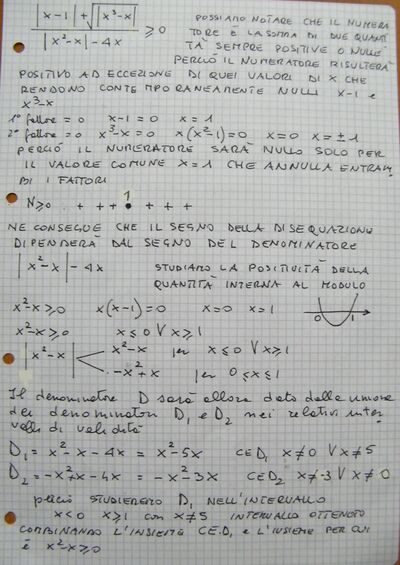 |x-1| + √|x³-x| / |x²-x| - 4x ≥ 0
POSSIAMO NOTARE CHE IL NUMERA
TORE È LA SOMMA DI DUE QUANTI
TÀ SEMPRE POSITIVE O NULLE
PERCIÒ IL NUMERATORE RISULTERÀ
POSITIVO AD ECCEZIONE DI QUEI VALORI DI X CHE
RENDONO CONTEMPORANEAMENTE NULLI x-1 e
x³-x
1° fattore = 0 x-1 = 0 x = 1
2° fattore = 0 x³-x = 0 x(x²-1)=0 x=0 x=±1
PERCIÒ IL NUMERATORE SARÀ NULLO SOLO PER
IL VALORE COMUNE x=1 CHE ANNULLA ENTRAM
BI I FATTORI
1
N≥0 . + + + • + + +
NE CONSEGUE CHE IL SEGNO DELLA DISEQUAZIONE
DIPENDERÀ DAL SEGNO DEL DENOMINATORE
|x²-x| - 4x STUDIAMO LA POSITIVITÀ DELLA
QUANTITÀ INTERNA AL MODULO
x²-x ≥ 0 x(x-1)=0 x=0 x=1 0 1
x²-x ≥ 0 x ≤ 0 V x ≥ 1
|x²-x| x²-x per x ≤ 0 V x ≥ 1
-x²+x per 0 ≤ x ≤ 1
Il denominatore D sarà allora dato dalla unione
dei denominatori D₁ e D₂ nei relativi inter
valli di validità
D₁ = x²-x-4x = x²-5x CED₁ x≠0 V x≠5
D₂ = -x²+x-4x = -x²-3x CED₂ x≠-3 V x≠0
perciò STUDIEREMO D₁ NELL'INTERVALLO
x<0 x≥1 con x≠5 INTERVALLO OTTENUTO
COMBINANDO L'INSIEME C.E.D₁ e L'INSIEME PER CUI
È x²-x≥0